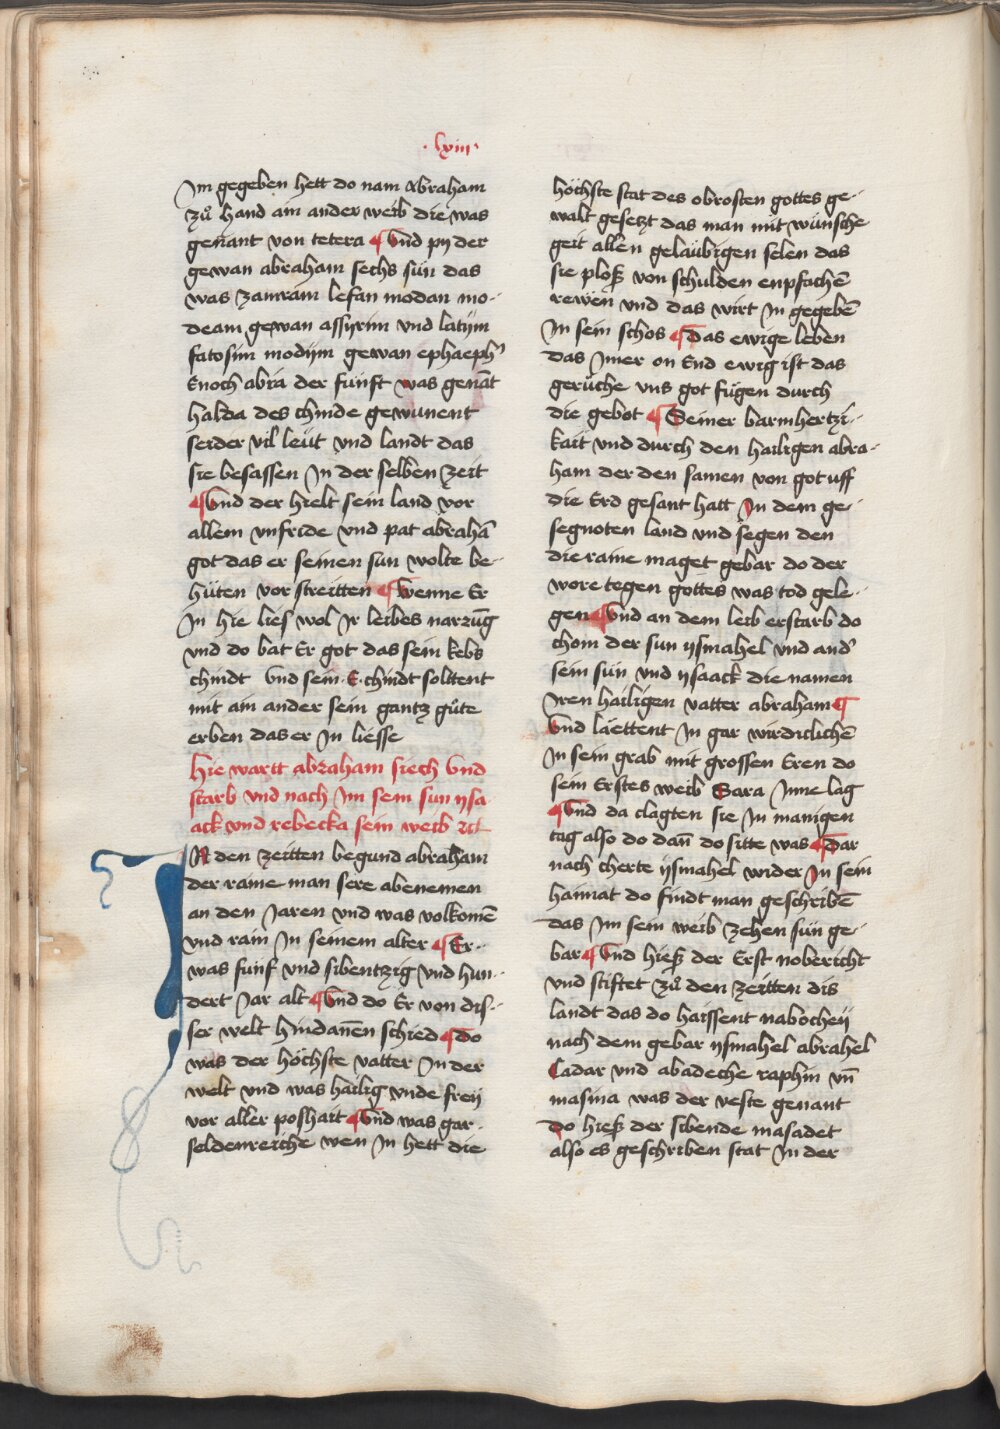 ·lxiii·
Im gegeben hett do nam Abraham
zů hand ain ander weib die was
genant von tetera ¶ Vnd py der
gewan abraham sechs sün das
was zamram lefan modan mo-
deam gewan assyrim vnd latijm
fatosim modijm gewan ephaeph
Enoch abra der funft was genāt
halda des chinde gewunent
seider vil leüt vnd landt das
sie besassen In der selben zeit
¶ Vnd der hielt sein land vor
allem vnfride vnd pat abrahā
got das er seinen sun wolte be-
hüten vor streitten ¶ Wenne Er
In hie lies wol Ir leibes narzūg
vnd do bat Er got das sein kebs
chindt Vnd sein ·E· chindt solltent
mit ain ander sein gantz gůte
erben das er In liesse
Hie wartt abraham siech Vnd
starb vnd nach Im sein sun ysa
ack vnd rebecka sein weib
IN den zeitten begund abraham
der raine man sere abenemen
an den Jaren vnd was volkomē
vnd rain In seinem alter ¶ Er-
was funf vnd sibentzig vnd hun-
dert Jar alt ¶ Vnd do Er von dis-
ser welt hindanēn schied ¶ Do
was der höchste vatter In der
welt vnd was hailig vnde freij
vor aller poshait ¶ Vnd was gar
seldenreiche wen In hett die
höchste stat des obrosten gottes ge-
walt gesetzt das man mit wünsche
geit allen geläubigen selen das
sie ploß von schulden enpfachē
rewen vnd das wirt In gegebē
In sein schos ¶ Das ewige leben
das Imer on End ewig ist das
gerůche vns got fůgen durch
die gebot ¶ Seiner barmhertzi-
kait vnd durch den hailigen abra-
ham der den samen von got uff
die Erd gesant hatt In dem ge-
segnoten land vnd segen den
die raine maget gebar do der
wore tegen gottes was tod gele-
gen ¶ Vnd an dem leib erstarb do
chom der sun ysmahel vnd and
sein sün vnd ysaack die namen
Iren hailigen vatter abraham ¶
Vnd läettent In gar wirdiclichē
In sein grab mit grossen Eren do
sein Erstes weib Sara Inne lag
¶ Vnd da clagten sie In manigen
tag also do dañ do sitte was ¶ Dar
nach cherte ijsmahel wider In sein
haimat do findt man geschribē
das Im sein weib zehen sün ge-
bar ¶ Vnd hieß der Erst nobericht
vnd stiftet zů den zeitten dis
landt das do haissent nabocheij
nach dem gebar ysmahel abrahel
Cadar vnd abadeche raphin vñ
masma was der veste genant
do hieß der sibende masadet
also es geschriben stat In der